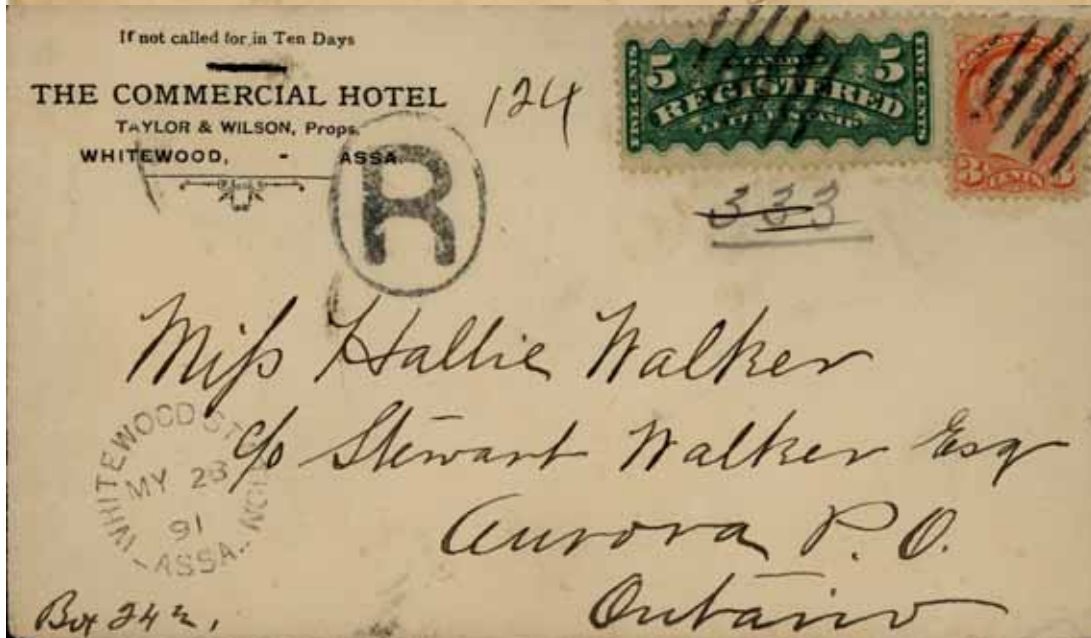 If not called for in Ten Days
THE COMMERCIAL HOTEL
TAYLOR & WILSON, Props.
WHITEWOOD, - ASSA
124
5 CANADA 5
FIVE CENTS REGISTERED FIVE CENTS
LETTER STAMP
3 CENTS 3
333
R
Miss Hallie Walker
c/o Stewart Walker Esq
Aurora P. O.
Ontario
WHITEWOOD STATION
MY 23
91
ASSA.
Box 242,